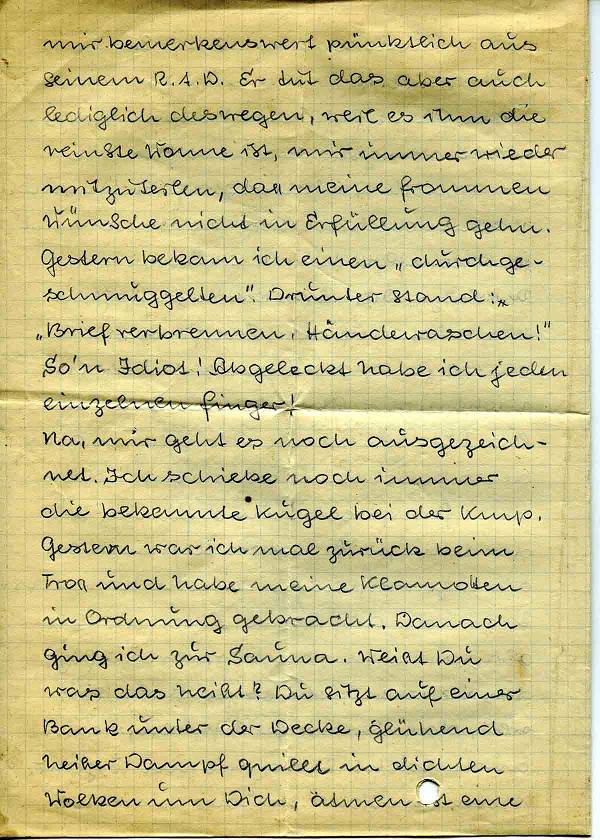 mir bemerkenswert pünktlich aus
seinem R.A.D. Er tut das aber auch
lediglich deswegen, weil es ihm die
reinste Wonne ist, mir immer wieder
mitzuteilen, daß meine frommen
Wünsche nicht in Erfüllung gehn.
Gestern bekam ich einen „durchge-
schmuggelten". Drunter stand: „
„Brief verbrennen. Händewaschen!"
So'n Idiot! Abgeleckt habe ich jeden
einzelnen Finger!
Na, mir geht es noch ausgezeich-
net. Ich schiebe noch immer
die bekannte Kugel bei der Kmp.
Gestern war ich mal zurück beim
Troß und habe meine Klamotten
in Ordnung gebracht. Danach
ging ich zur Sauna. Weißt Du
was das heißt? Du sitzt auf einer
Bank unter der Decke, glühend
heißer Dampf quillt in dichten
Wolken um Dich, atmen ist eine